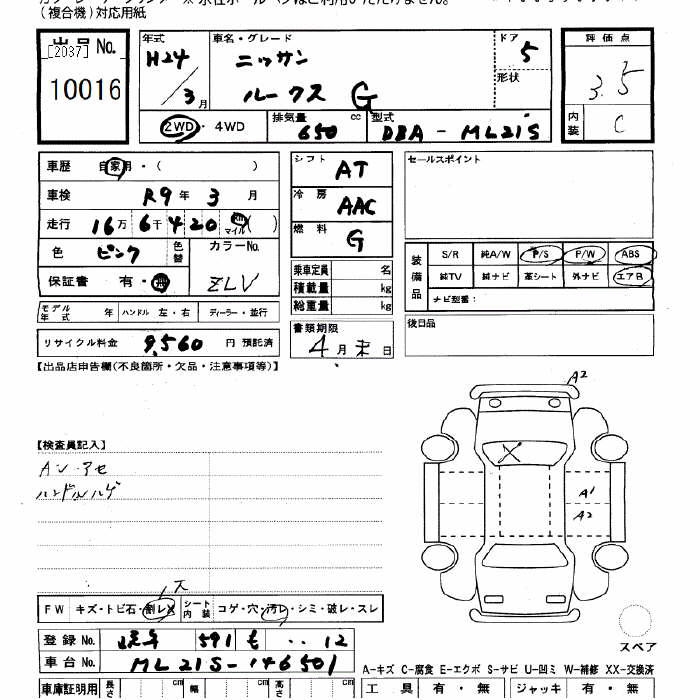 (複合機)対応用紙
出品No. [2037]
10016
年式 H24/3月
車名・グレード ニッサン ルークス G
ドア 5
形状
評価点 3.5
内装 C
2WD・4WD
排気量 650 cc
型式 DBA-ML21S
車歴 自家用・( )
車検 R9年 3月
走行 16万6千420 km マイル ( )
色 ピンク 色替
カラーNo. ZLV
保証書 有・無
モデル年式 年 ハンドル 左・右 ディーラー・並行
リサイクル料金 9,560 円 預託済
シフト AT
冷房 AAC
燃料 G
乗車定員 名
積載量 kg
総重量 kg
書類期限
4月末日
セールスポイント
装備品 S/R 純A/W P/S P/W ABS
純TV 純ナビ 革シート 外ナビ エアB
ナビ型番:
後日品
【出品店申告欄(不良箇所・欠品・注意事項等)】
【検査員記入】
ハンドルハゲ
A2
X
A1
A2
スペア
FW キズ・トビ石・割レX
シート内装 コゲ・穴・汚レ・シミ・破レ・スレ
登録No. 591 も ・・12
車台No. ML21S-146501
A-キズ C-腐食 E-エクボ S-サビ U-凹ミ W-補修 XX-交換済
車庫証明用 長さ cm 幅 cm 高さ cm
工具 有・無 ジャッキ 有・無